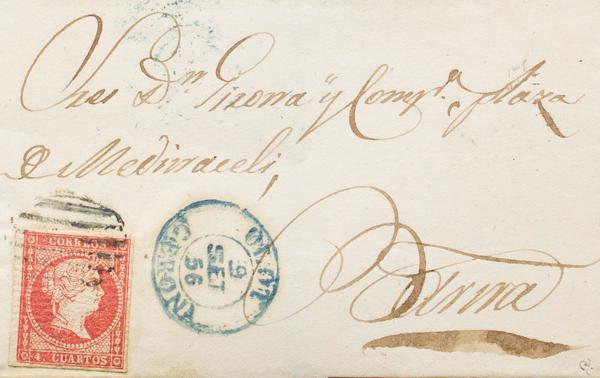 Sres Dn Girona y Compª. plaza
de Medinaceli,
Barna
OLOT
9
SET
56
GERONA
CORREOS
4. CUARTOS